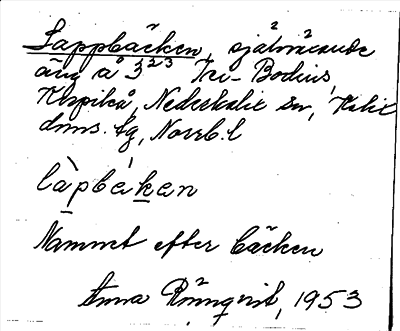 Lappbäcken, självnärande
äng å 3²²³ Tri-Bodius,
Klapileå, Nederkalix sn, Kalix
dms. lg, Norrb. l
làpbèken
Namnet efter bäcken
Anna Rönnqvist, 1953